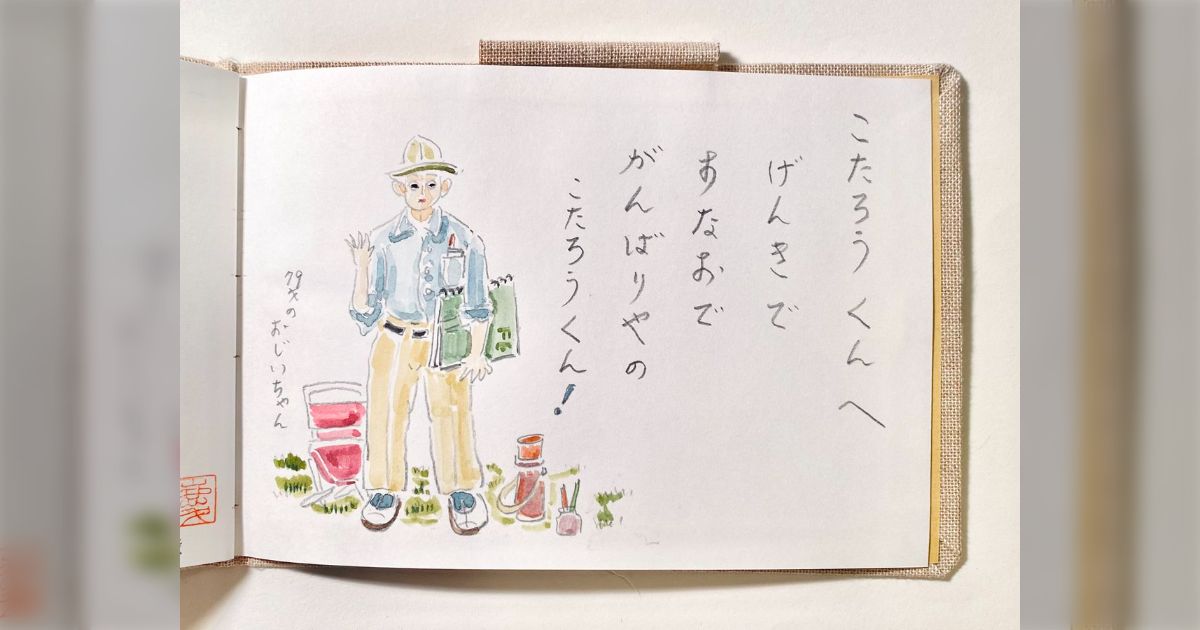 こたろうくんへ
げんきで
すなおで
がんばりやの
こたろうくん!
79才のおじいちゃん
F6